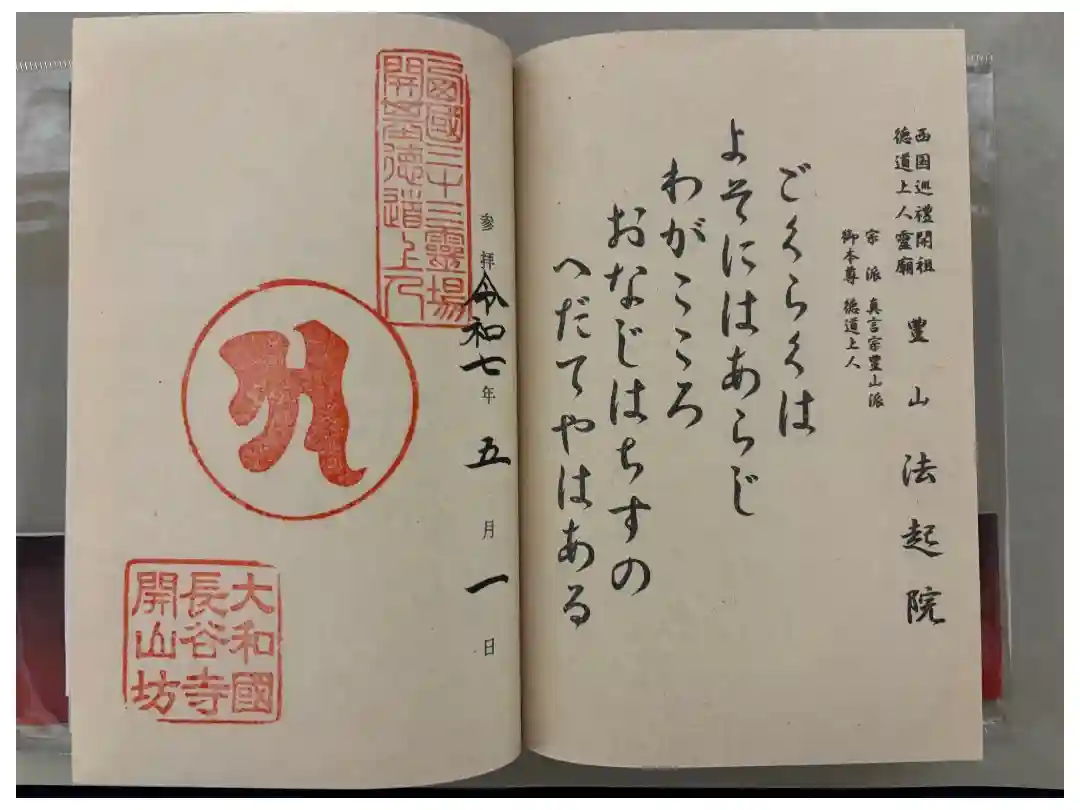 西国巡禮開祖
徳道上人靈廟
豊山法起院
宗派 真言宗豊山派
御本尊 徳道上人
ごくらくは
よそにはあらじ
わがこころ
おなじはちすの
へだてやはある
参拝 令和七年五月一日
西國三十三靈場
開基徳道上人
大和國
長谷寺
開山坊